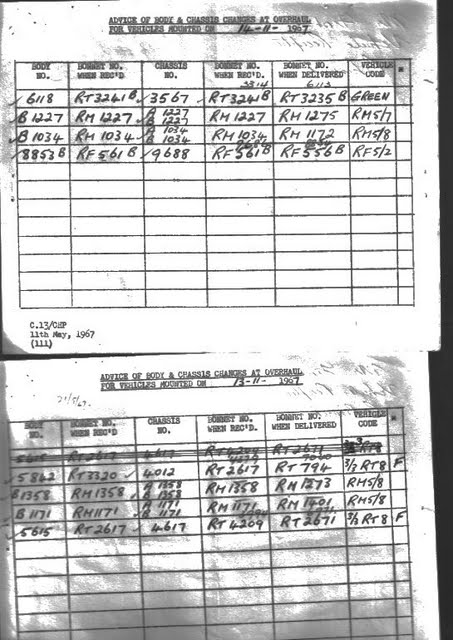 ADVICE OF BODY & CHASSIS CHANGES AT OVERHAUL
FOR VEHICLES MOUNTED ON 14-11- 1967
BODY NO. BONNET NO. WHEN REC'D. CHASSIS NO. BONNET NO. WHEN REC'D. BONNET NO. WHEN DELIVERED VEHICLE CODE
3314 6113
✓ 6118 RT3241B ✓ 3567 RT3241B RT3235B GREEN
B1227 RM1227 A 1227 B 1227 RM1227 RM1275 RM5/7
B1034 RM1034 A 1034 B 1034 RM1034 RM1172 RM5/8
✓ 8853B RF561B ✓ 9688 RF561B RF556B RF5/2
C.13/CHP
11th May, 1967
(111)
ADVICE OF BODY & CHASSIS CHANGES AT OVERHAUL
FOR VEHICLES MOUNTED ON 13-11- 1967
BODY NO. BONNET NO. WHEN REC'D CHASSIS NO. BONNET NO. WHEN REC'D. BONNET NO. WHEN DELIVERED VEHICLE CODE
5615 RT2617 4617 RT4209 RT2671 RT8
✓ 5842 RT3320 ✓ 4012 RT2617 RT794 3/2 RT8 F
B1358 RM1358 A 1358 B 1358 RM1358 RM1373 RM5/8
B1171 RM1171 A 1171 B 1171 RM1171 RM1401 RM5/8
✓ 5615 RT2617 ✓ 4617 RT4209 RT2671 3/2 RT8 F